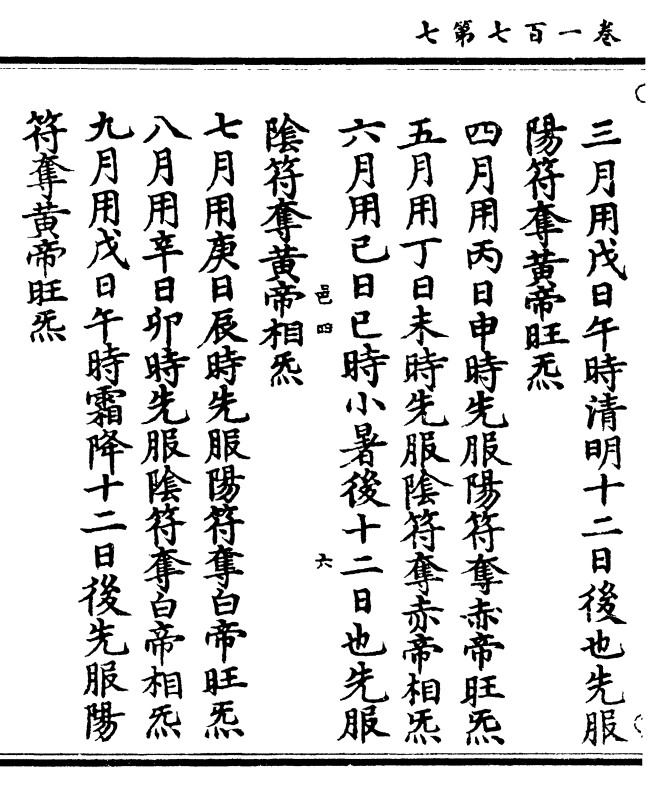 卷一百七第七
三月用戊日午時清明十二日後也先服
陽符奪黃帝旺炁
四月用丙日申時先服陽符奪赤帝旺炁
五月用丁日未時先服陰符奪赤帝相炁
六月用己日巳時小暑後十二日也先服
邑四 六
陰符奪黃帝相炁
七月用庚日辰時先服陽符奪白帝旺炁
八月用辛日卯時先服陰符奪白帝相炁
九月用戊日午時霜降十二日後先服陽
符奪黃帝旺炁